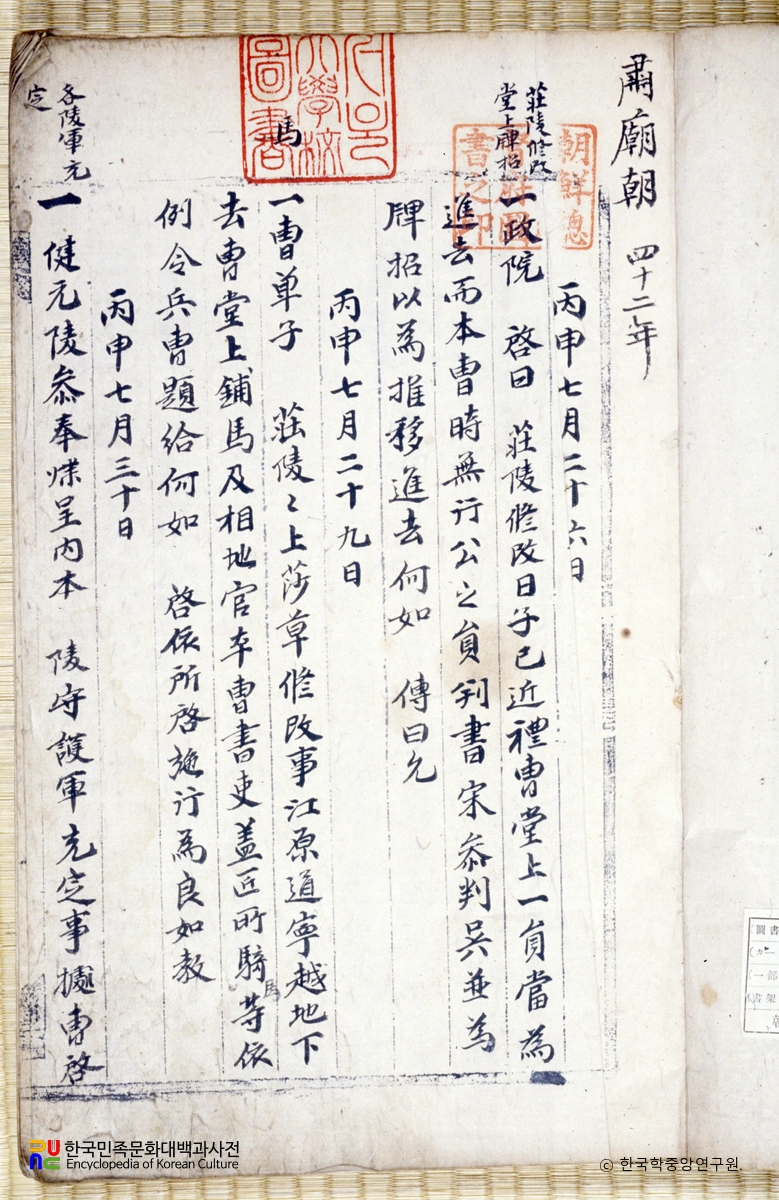 肅廟朝 四十二年
莊陵修改
堂上牌招
丙申七月二十六日
一政院 啓曰 莊陵修改日子已近禮曹堂上一員當爲
進去而本曹時無行公之員判書宋參判吳並爲
牌招以爲推移進去何如 傳曰允
丙申七月二十九日
馬
一曹單子 莊陵〻上莎草修改事江原道寧越地下
去曹堂上鋪馬及相地官本曹書吏盖匠所騎馬等依
例令兵曹題給何如 啓依所啓施行爲良如敎
丙申七月三十日
各陵軍充
定
一 健元陵參奉牒呈內本 陵守護軍充定事據曹啓
朝鮮總
督府圖
書之印
大學校
圖書
圖書
한국민족문화대백과사전
Encyclopedia of Korean Culture
ⓒ 한국학중앙연구원